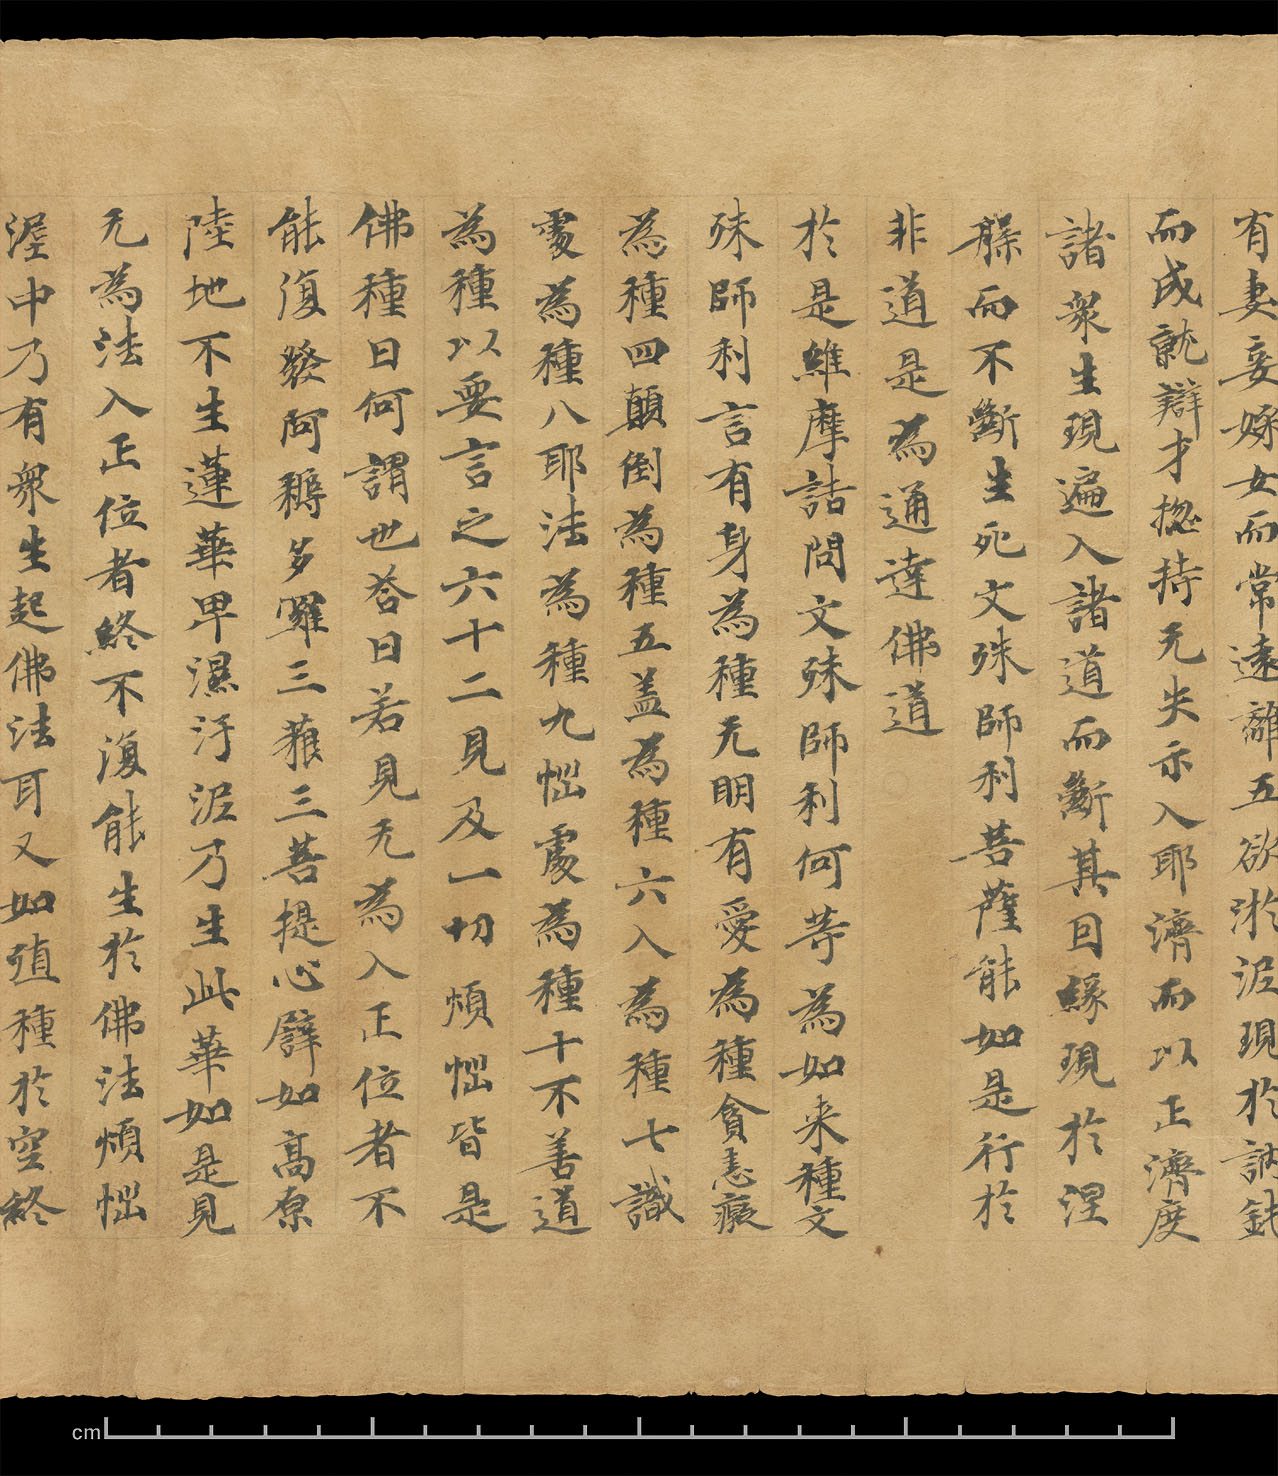 有妻妾婇女而常遠離五欲淤泥現於訥鈍
而成就辯才揔持无失示入耶濟而以正濟度
諸衆生現遍入諸道而斷其因緣現於涅
槃而不斷生死文殊師利菩薩能如是行於
非道是為通達佛道
於是維摩詰問文殊師利何等為如来種文
殊師利言有身為種无明有愛為種貪恚癡
為種四顛倒為種五盖為種六入為種七識
處為種八耶法為種九惱處為種十不善道
為種以要言之六十二見及一切煩惱皆是
佛種曰何謂也荅曰若見无為入正位者不
能復發阿耨多羅三藐三菩提心譬如高原
陸地不生蓮華卑濕汙泥乃生此華如是見
无為法入正位者終不復能生於佛法煩惱
渥中乃有衆生起佛法耳又如殖種於空終
cm